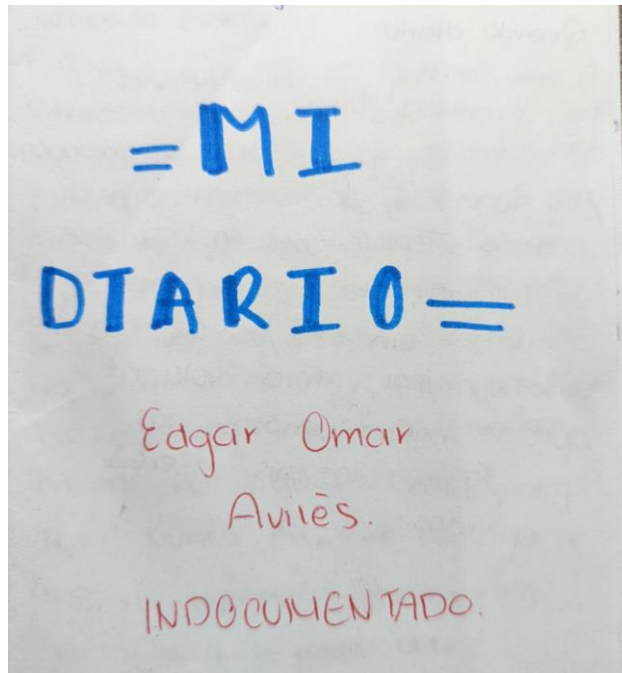 =MI
DIARIO=
Edgar Omar
Avilès.
INDOCUMENTADO.